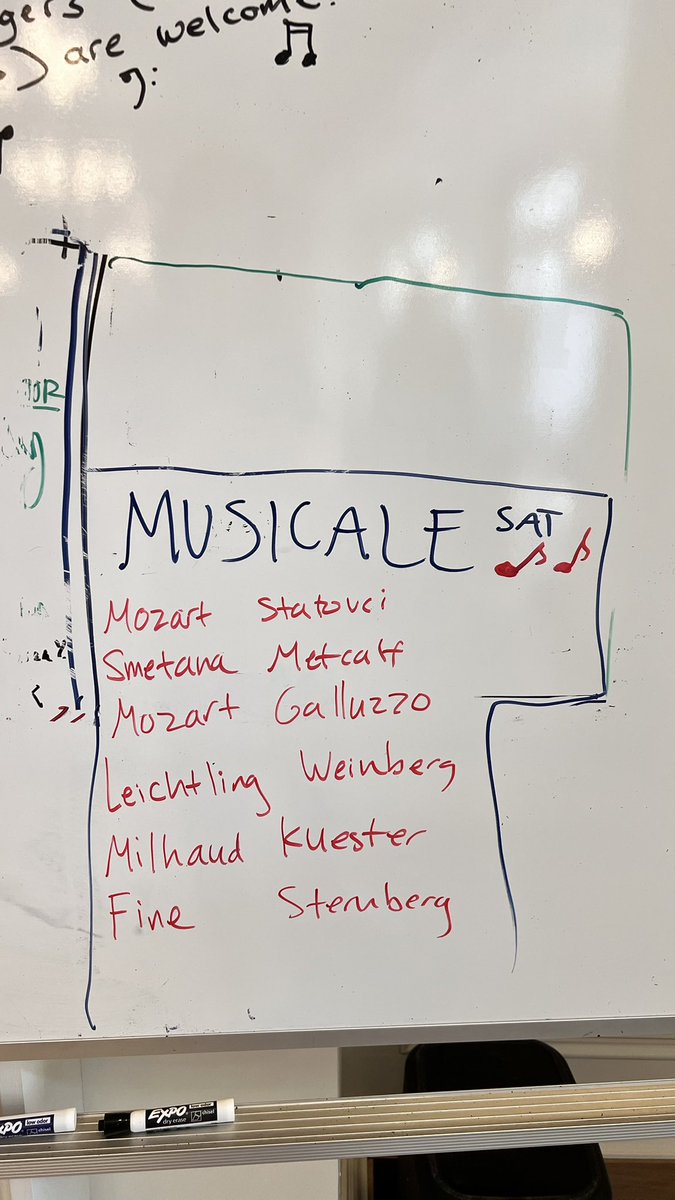 are welcome!
OR
MUSICALE SAT
Mozart Statovci
Smetana Metcalf
Mozart Galluzzo
Leichtling Weinberg
Milhaud Kuester
Fine Sternberg
EXPO low odor
EXPO low odor
dry erase chisel